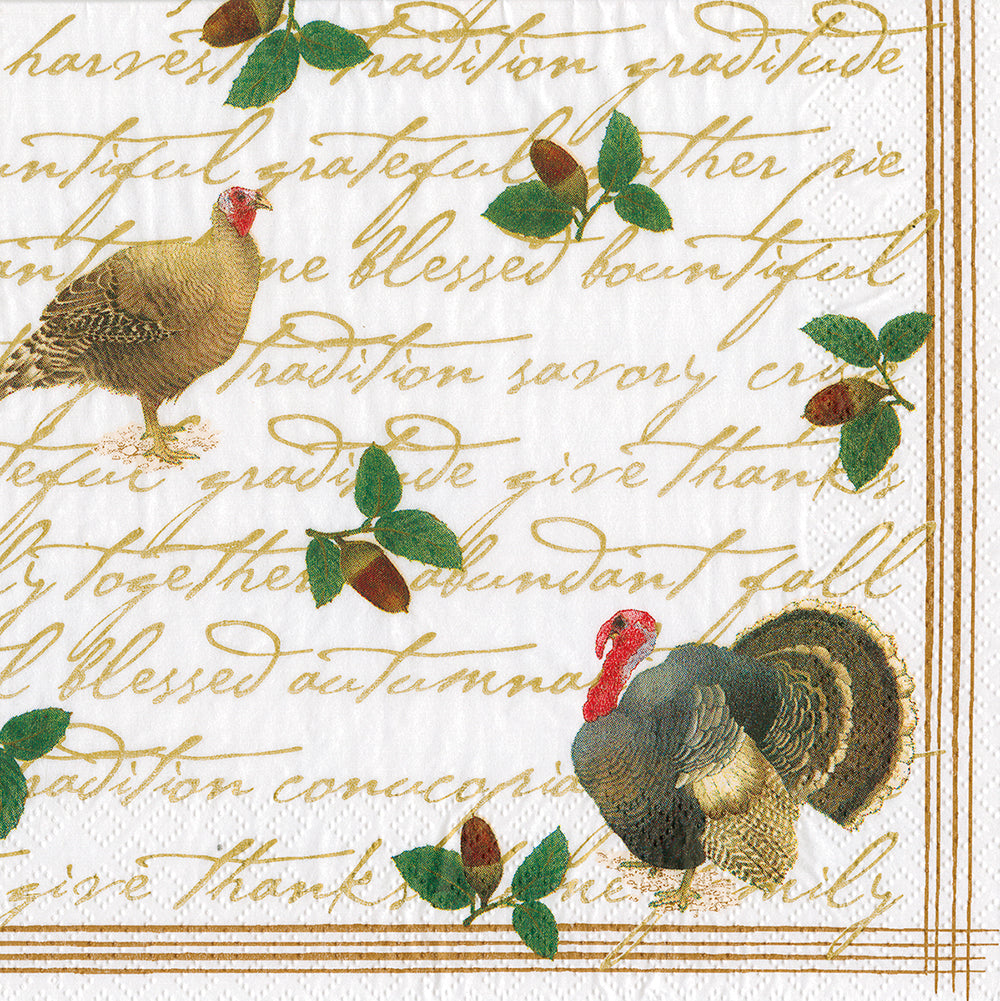 harvest tradition graditude
untiful grateful gather pie
me blessed bountiful
tradition savory
teful graditude give thanks
ly together abundant fall
l blessed autumna
radition conucopia
give thanks family